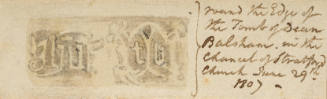 round the Edge of
the Tomb of Dean
Balsham in the
Chancel of Stratford
Church June 29th
1807